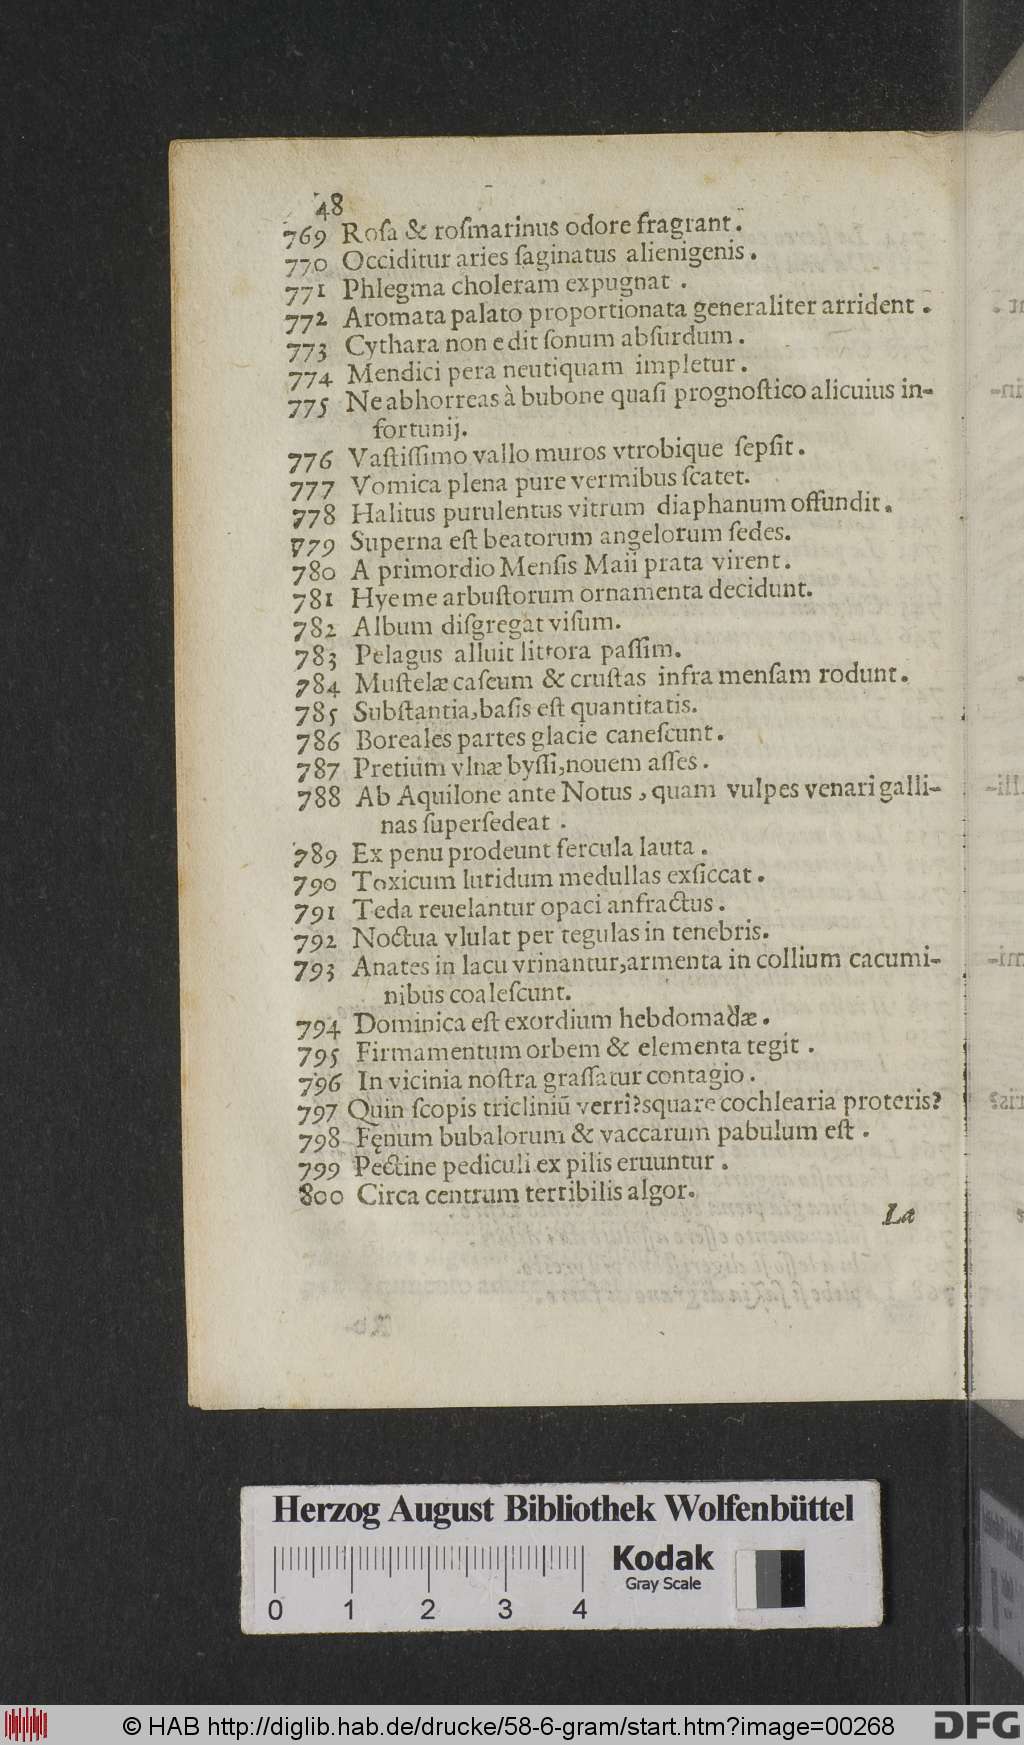 48
769 Roſa & roſmarinus odore fragrant.
770 Occiditur aries ſaginatus alienigenis.
771 Phlegma choleram expugnat.
772 Aromata palato proportionata generaliter arrident.
773 Cythara non edit ſonum abſurdum.
774 Mendici pera neutiquam impletur.
775 Ne abhorreas à bubone quaſi prognoſtico alicuius in-
fortunij.
776 Vaſtiſſimo vallo muros vtrobique ſepſit.
777 Vomica plena pure vermibus ſcatet.
778 Halitus purulentus vitrum diaphanum offundit.
779 Superna eſt beatorum angelorum ſedes.
780 A primordio Menſis Maii prata virent.
781 Hyeme arbuſtorum ornamenta decidunt.
782 Album diſgregat viſum.
783 Pelagus alluit littora paſſim.
784 Muſtelæ caſeum & cruſtas infra menſam rodunt.
785 Subſtantia,baſis eſt quantitatis.
786 Boreales partes glacie caneſcunt.
787 Pretium vlnæ byſſi,nouem aſſes.
788 Ab Aquilone ante Notus, quam vulpes venari galli-
nas ſuperſedeat.
789 Ex penu prodeunt fercula lauta.
790 Toxicum luridum medullas exſiccat.
791 Teda reuelantur opaci anfractus.
792 Noctua vlulat per tegulas in tenebris.
793 Anates in lacu vrinantur,armenta in collium cacumi-
nibus coaleſcunt.
794 Dominica eſt exordium hebdomadæ.
795 Firmamentum orbem & elementa tegit.
796 In vicinia noſtra graſſatur contagio.
797 Quin ſcopis tricliniũ verri?square cochlearia proteris?
798 Fęnum bubalorum & vaccarum pabulum eſt.
799 Pectine pediculi ex pilis eruuntur.
800 Circa centrum terribilis algor.
La
Herzog August Bibliothek Wolfenbüttel
Kodak
Gray Scale
0 1 2 3 4
© HAB http://diglib.hab.de/drucke/58-6-gram/start.htm?image=00268
DFG